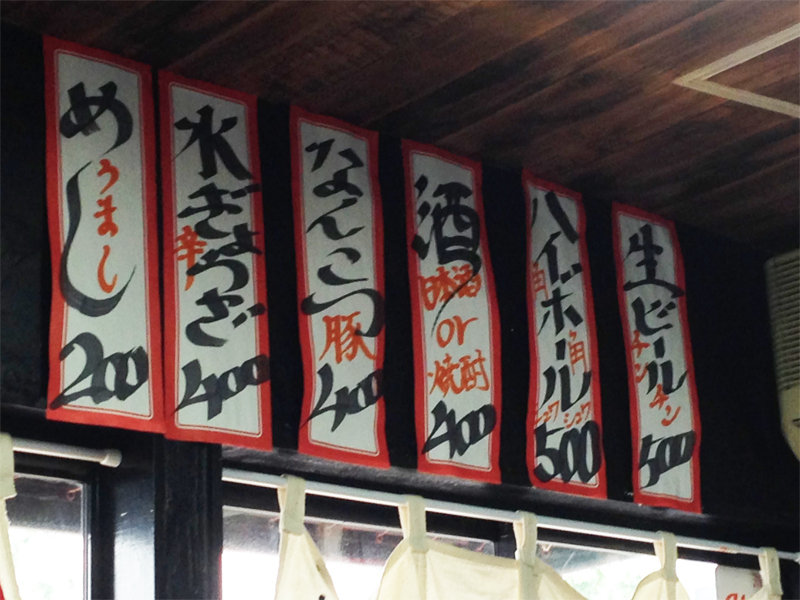 めし
うまし
200
水ぎょうざ
辛
400
なんこつ
豚
400
酒
日本酒
or
焼酎
400
ハイボール
角
角
シュワ
シュワ
500
生ビール
チン
チン
500